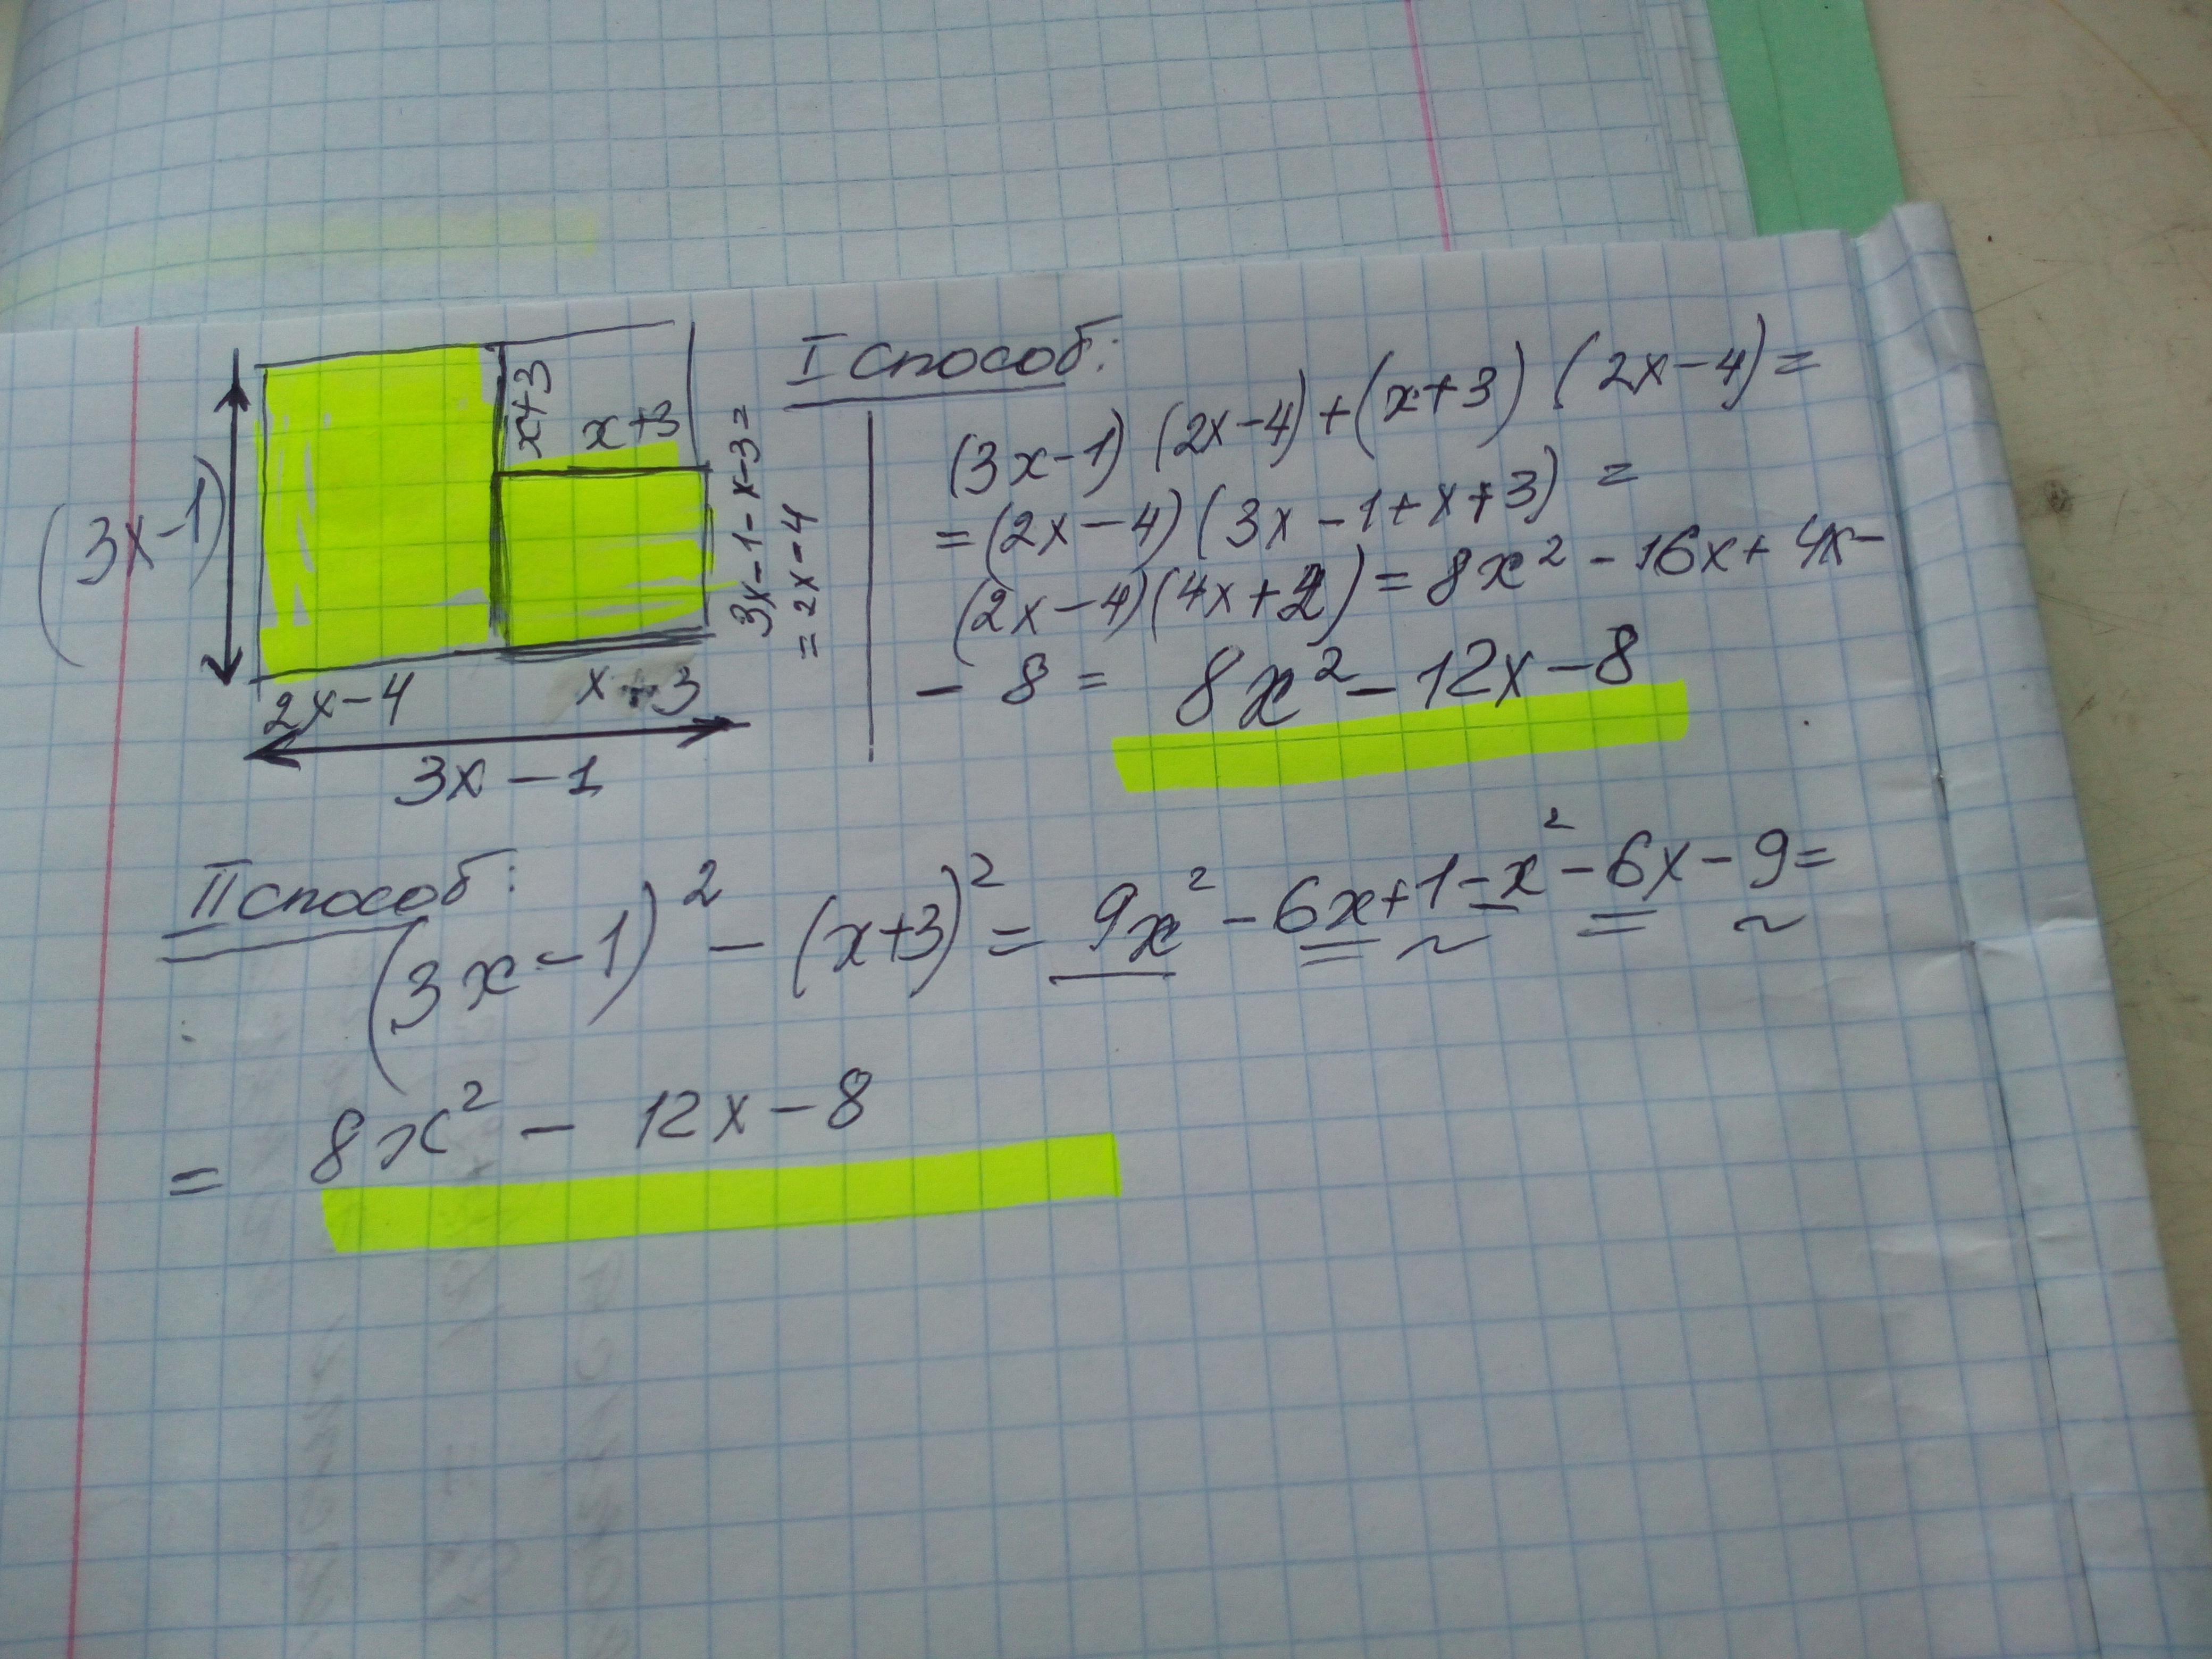 (3x-1)
x+3
x+3
3x-1-x-3=
=2x-4
2x-4
x+3
3x-1
I способ:
(3x-1)(2x-4)+(x+3)(2x-4)=
=(2x-4)(3x-1+x+3)=
(2x-4)(4x+2)=8x²-16x+4x-
-8= 8x²-12x-8
II способ:
(3x-1)²-(x+3)²=9x²-6x+1-x²-6x-9=
= 8x²-12x-8